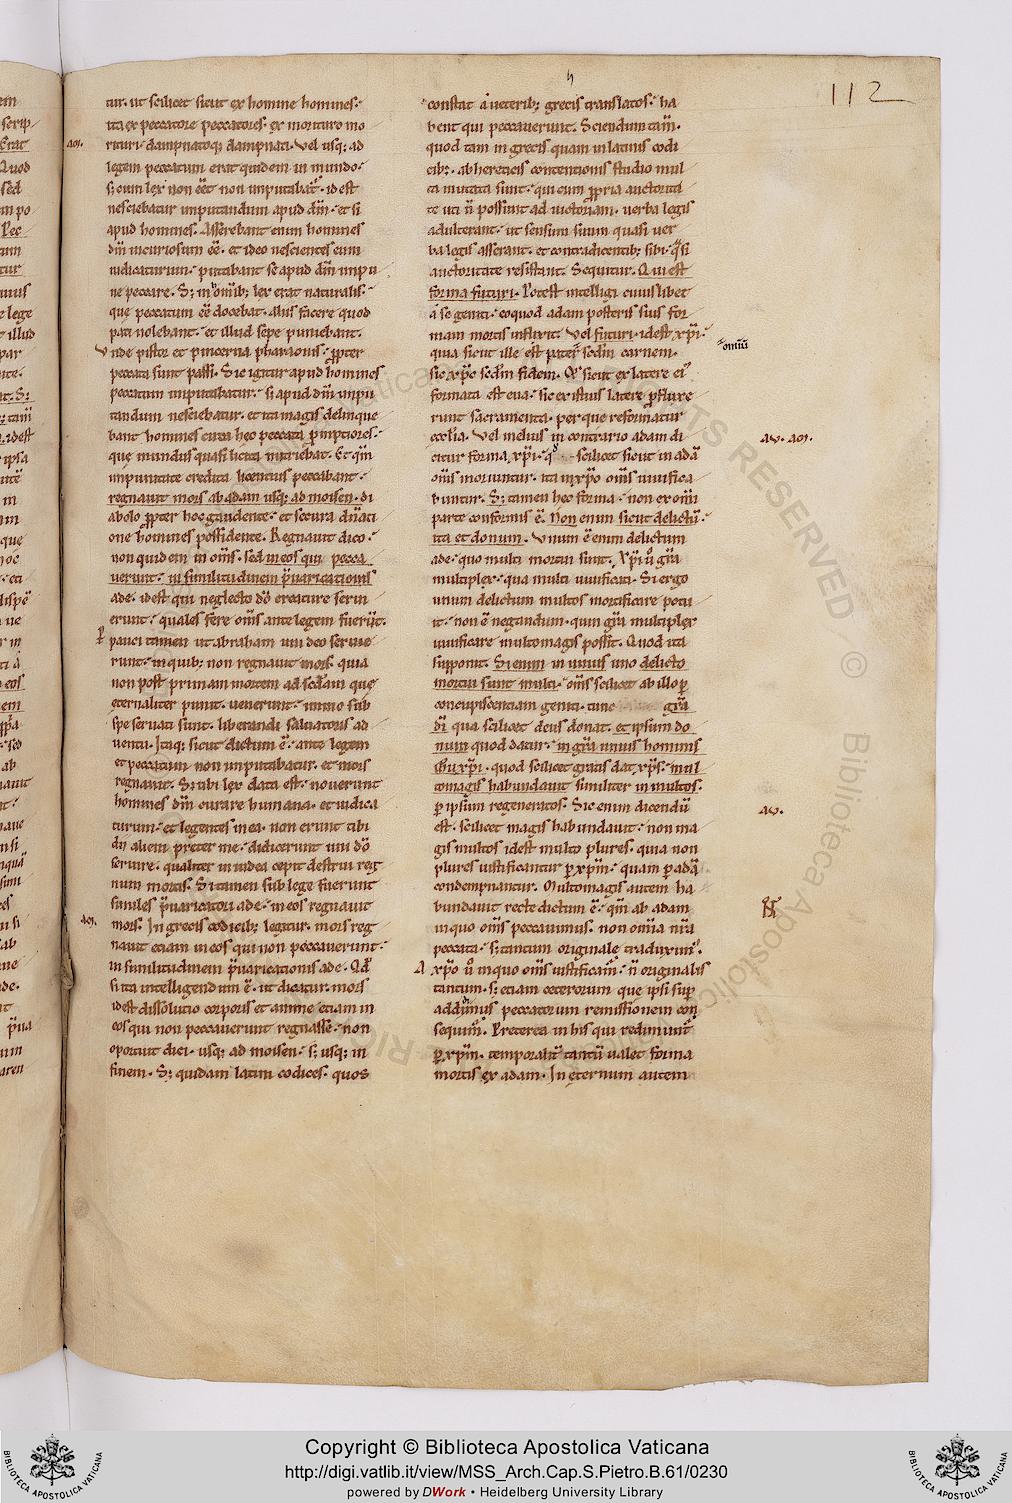 112
tur. ut scilicet sicut ex homine homines.
ita ex peccatore peccatores. ex morituro mo
rituri. dampnatoq; dampnati. Vel usq; ad
legem peccatum erat quidem in mundo.
s; cum lex non eet non imputabat. id est
nesciebatur imputandum apud dm. et si
apud homines. Asserebant enim homines
dm incuriosum ee. et ideo nescientes eum
iudicaturum. putabant se apud dm impu
ne peccare. S; in omib; lex erat naturalis.
que peccatum ee docebat. aliis facere quod
pati nolebant. et illud sepe puniebant.
Vnde pistor et pincerna pharaonis. ppter
peccata sunt passi. Sic igitur apud homines
peccatum imputabatur. si apud dm impu
tandum nesciebatur. et ita magis delinque
bant homines circa hec peccata pmptiores.
que mundus quasi licita nutriebat. Et qm
impunitate credita licentius peccabant.
regnauit mors ab adam usq; ad moisen. di
abolo ppter hoc gaudente. et secura dnati
one homines possidente. Regnauit dico.
non quidem in oms. sed in eos qui pecca
uerunt. in similitudinem puaricationis
ade. id est qui neglecto do creature serui
erunt. quales fere oms ante legem fuerut.
pauci tamen ut abraham uni deo seruie
runt. in quib; non regnauit mors. quia
non post primam mortem ad sedam que
eternaliter punit. uenerunt. immo sub
spe seruati sunt. liberandi saluatoris ad
uentu. Itaq; sicut dictum e. ante legem
et peccatum non imputabatur. et mors
regnauit. S; ubi lex data est. nouerunt
homines dm curare humana. et iudica
turum. et legentes in ea. non erunt tibi
dii alieni preter me. didicerunt uni do
seruire. qualiter in iudea cepit destrui reg
num mortis. Si tamen sub lege fuerunt
similes puaricatori ade. in eos regnauit
mors. In grecis codicib; legitur. mors reg
nauit eciam in eos qui non peccauerunt.
in similitudinem puaricationis ade. Qd
si ita intelligendum e. ut dicatur. mors
id est dissolutio corporis et anime etiam in
eos qui non peccauerunt regnasse. non
oportuit dici. usq; ad moisen. s; usq; in
finem. S; quidam latini codices. quos
constat a ueterib; grecis translatos. ha
bent qui peccauerunt. Sciendum tam.
quod tam in grecis quam in latinis codi
cib;. ab hereticis contentionis studio mul
ta mutata sunt. qui cum ppria auctorita
te uti n possunt ad uictoriam. uerba legis
adulterant. ut sensum suum quasi uer
ba legis asserant. et contradicentib; sibi. qsi
auctoritate resistant. Sequitur. Qui est
forma futuri. Potest intelligi cuiuslibet
a se geniti. eo quod adam posteris suis for
mam mortis inflixit. Vel futuri. id est xpi.
omiu
quia sicut ille est pater sedm carnem.
sic xpc sedm fidem. Et sicut ex latere ei
formata est eua. sic ex istius latere pfluxe
runt sacramenta. per que reformatur
ecclia. Vel melius in contrario adam di
citur forma xpi. scilicet sicut in ada
oms moriuntur. ita in xpo oms uiuifica
buntur. S; tamen hec forma. non ex omi
parte conformis e. Non enim sicut delictu.
ita et donum. Vnum e enim delictum
ade. quo multi mortui sunt. Xpi u gra
multiplex. qua multi uiuificati. Si ergo
unum delictum multos mortificare potu
it. non e negandum. quin gra multiplex
uiuificare multomagis possit. Quod ita
supponit. Si enim in unius uno delicto
mortui sunt multi. oms scilicet ab illo p
concupiscentiam geniti. tunc gra
di qua scilicet deus donat. et ipsum do
num quod datur. in gra unius hominis
ihu xpi. quod scilicet gratis dat xps. mul
tomagis habundauit similiter in multos.
p ipsum regeneratos. Sic enim dicendu
est. scilicet magis habundauit. non ma
gis multos id est multo plures. quia non
plures iustificantur p xpm. quam p ada
condempnantur. Multomagis autem ha
bundauit recte dictum e. qm ab adam
in quo oms peccauimus. non omia nra
peccata. s; tantum originale traduxim.
A xpo u in quo oms iustificam. n originalis
tantum. s; etiam ceterorum que ipsi sup
addimus peccatorum remissionem con
sequim. Preterea in his qui redimunt
p xpm. temporalit tantu ualet forma
mortis ex adam. In eternum autem
Copyright © Biblioteca Apostolica Vaticana
http://digi.vatlib.it/view/MSS_Arch.Cap.S.Pietro.B.61/0230
powered by DWork • Heidelberg University Library